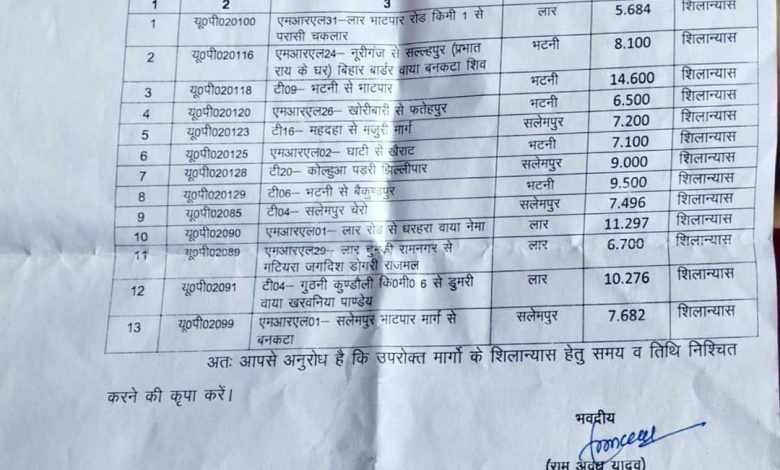 1 2 3
1 यू0पी020100 एमआरएल31– लार भाटपार रोड किमी 1 से लार 5.684 शिलान्यास
परासी चकलार
2 यू0पी020116 एमआरएल24– नूरीगंज से सल्लहपुर (प्रभात भटनी 8.100 शिलान्यास
राय के घर) बिहार बार्डर वाया बनकटा शिव
3 यू0पी020118 टी09– भटनी से भाटपार भटनी 14.600 शिलान्यास
4 यू0पी020120 एमआरएल26– खोरीबारी से फतेहपुर भटनी 6.500 शिलान्यास
5 यू0पी020123 टी16– महदहा से मजुरी मार्ग सलेमपुर 7.200 शिलान्यास
6 यू0पी020125 एमआरएल02– घाटी से खैराट भटनी 7.100 शिलान्यास
7 यू0पी020128 टी20– कोल्हुआ पड़री झिल्लीपार सलेमपुर 9.000 शिलान्यास
8 यू0पी020129 टी06– भटनी से बैकुण्ठपुर भटनी 9.500 शिलान्यास
9 यू0पी02085 टी04– सलेमपुर चेरो सलेमपुर 7.496 शिलान्यास
10 यू0पी02090 एमआरएल01– लार रोड से धरहरा वाया नेमा लार 11.297 शिलान्यास
11 यू0पी02089 एमआरएल29– लार चुन्की रामनगर से लार 6.700 शिलान्यास
मटियरा जगदिश डोगरी राजमल
12 यू0पी02091 टी04– गुठनी कुण्डौली कि0मी0 6 से डुमरी लार 10.276 शिलान्यास
वाया खरवनिया पाण्डेय
13 यू0पी02099 एमआरएल01– सलेमपुर भाटपार मार्ग से सलेमपुर 7.682 शिलान्यास
बनकटा
अतः आपसे अनुरोध है कि उपरोक्त मार्गो के शिलान्यास हेतु समय व तिथि निश्चित
करने की कृपा करें।
भवदीय
(राम अवध यादव)